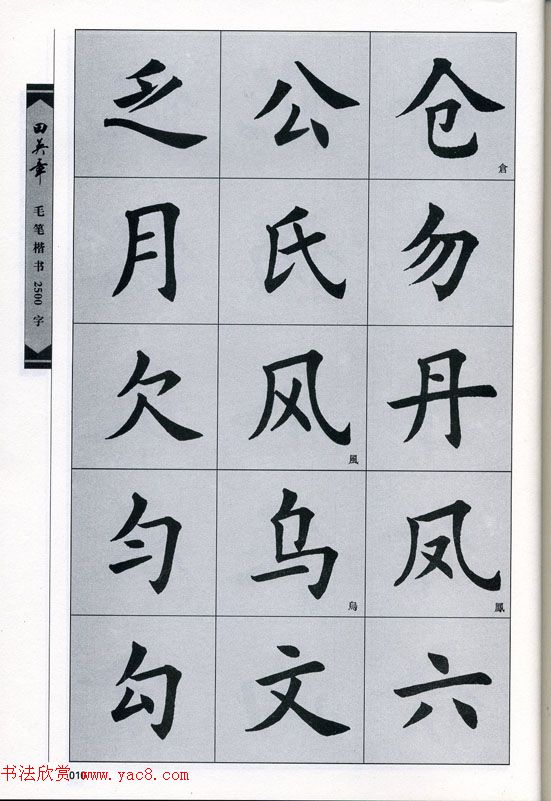 田英章 毛笔楷书2500字
乏 公 仓 倉
月 氏 勿
欠 风 風 丹
匀 乌 烏 凤 鳳
勾 文 六
010
书法欣赏 www.yac8.com